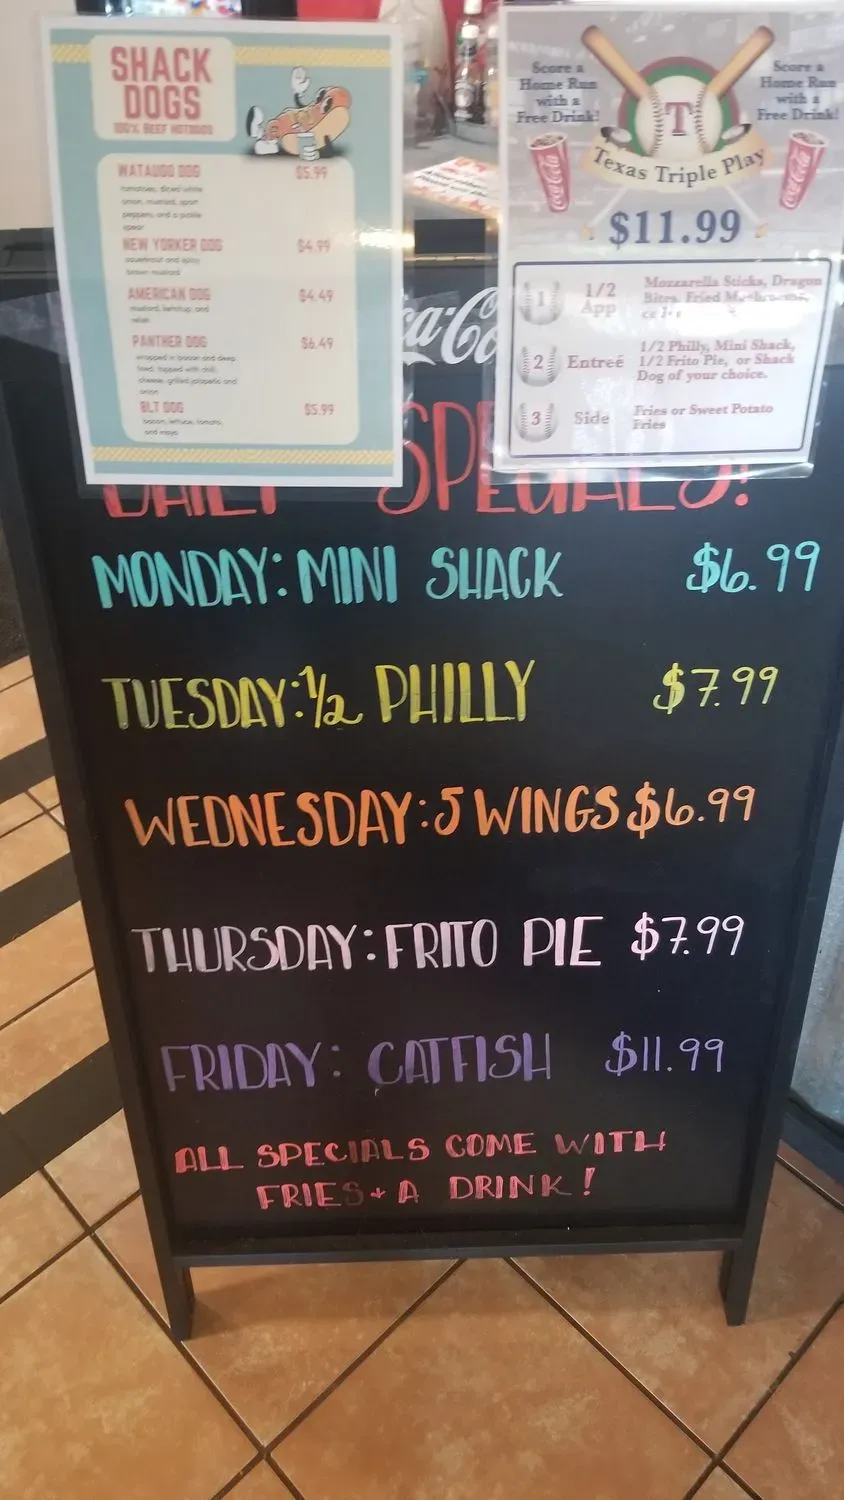 SHACK
DOGS
100% BEEF HOTDOGS
WATAUGU DOG $5.99
tomatoes, diced white
onion, mustard, sport
peppers, and a pickle
spear
NEW YORKER DOG $4.99
sauerkraut and spicy
brown mustard
AMERICAN DOG $4.49
mustard, ketchup, and
relish
PANTHER DOG $6.49
wrapped in bacon and deep
fried, topped with chili,
cheese, grilled jalapeño and
onion
BLT DOG $5.99
bacon, lettuce, tomato,
and mayo
Score a
Home Run
with a
Free Drink!
Score a
Home Run
with a
Free Drink!
T
Coca-Cola
Coca-Cola
Texas Triple Play
$11.99
1 1/2
App
Mozzarella Sticks, Dragon
Bites, Fried Mushrooms,
2 Entreé
1/2 Philly, Mini Shack,
1/2 Frito Pie, or Shack
Dog of your choice.
3 Side
Fries or Sweet Potato
Fries
ca-Co
DAILY SPECIALS!
MONDAY: MINI SHACK $6.99
TUESDAY: 1/2 PHILLY $7.99
WEDNESDAY: 5 WINGS $6.99
THURSDAY: FRITO PIE $7.99
FRIDAY: CATFISH $11.99
ALL SPECIALS COME WITH
FRIES + A DRINK!